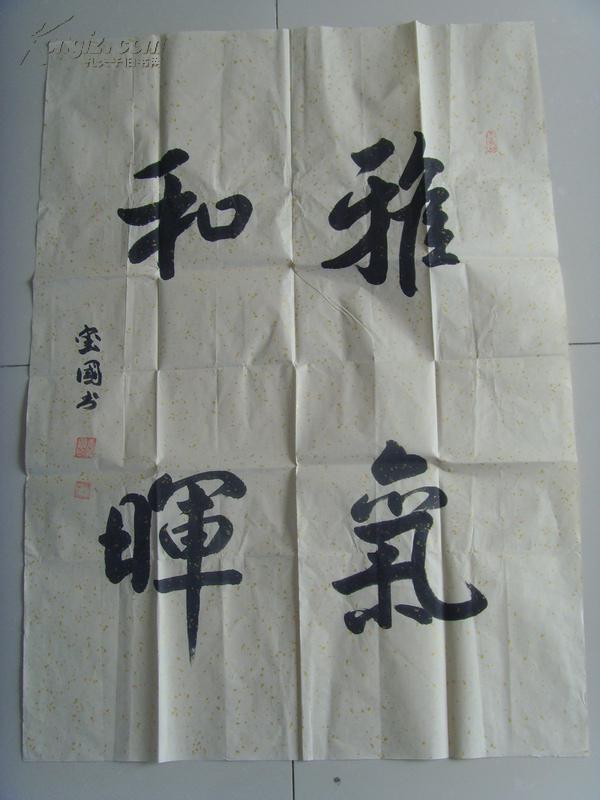 雅氣
和暉
宝國书
Kongfz.com
孔夫子旧书网